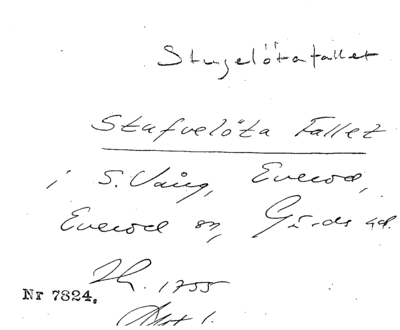 Stugelötafallet
Stafvelöta Fallet
i S. Vång, Everöd,
Everöd sn, Gärds hd.
1755
Nr 7824.
Akt 1.